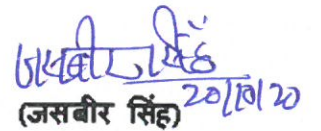 जसबीर सिंह
20/10/20
(जसबीर सिंह)